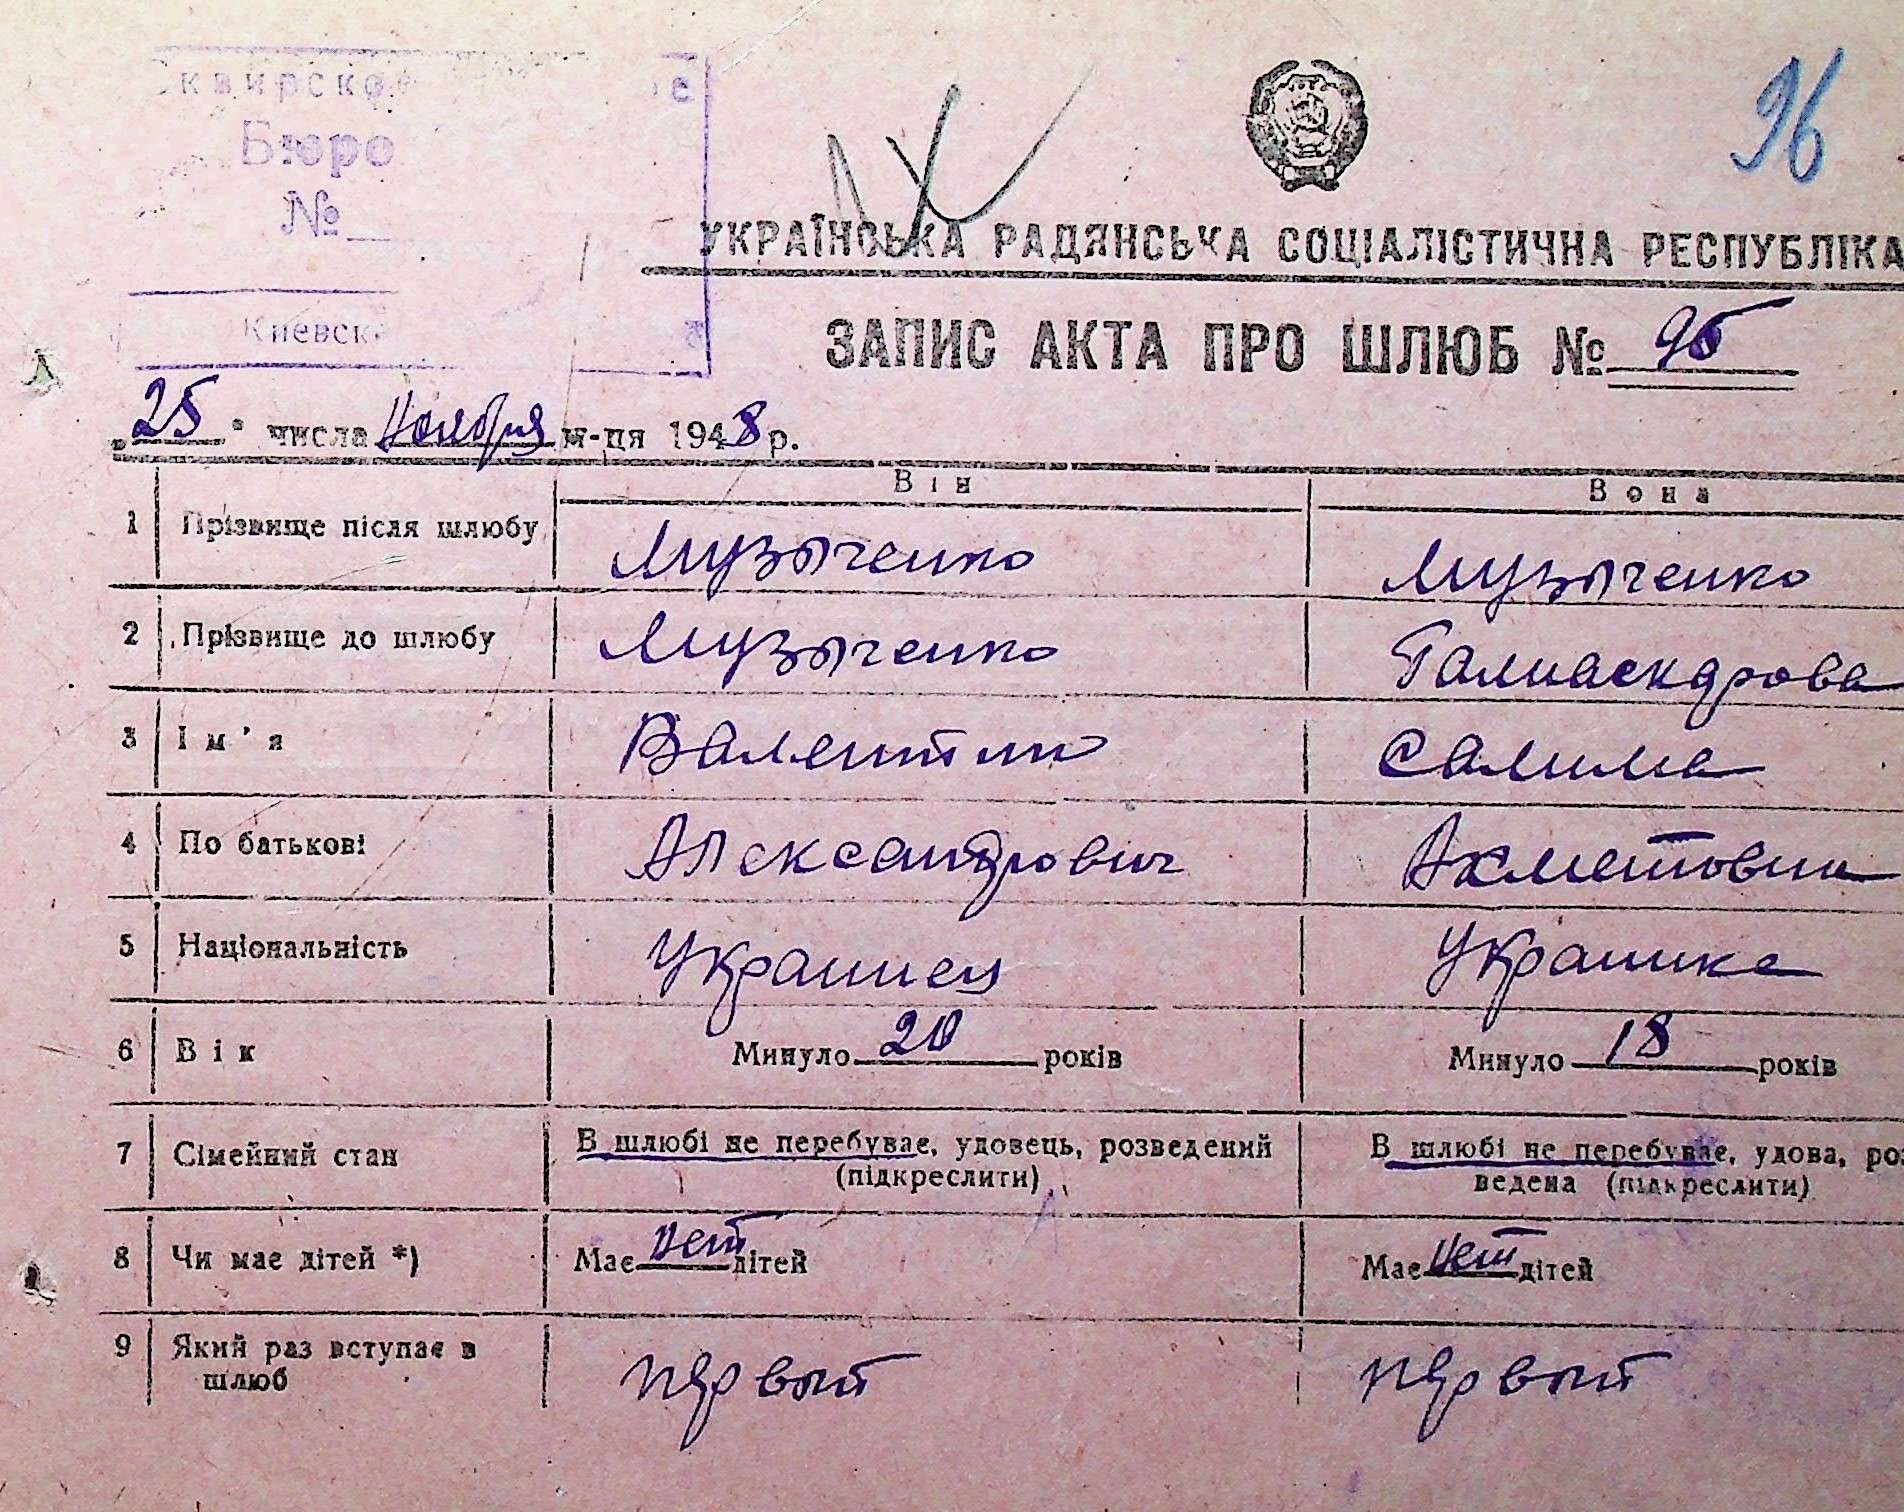 96
Сквирское
Бюро
№
Киевск
УКРАЇНСЬКА РАДЯНСЬКА СОЦІАЛІСТИЧНА РЕСПУБЛІКА
ЗАПИС АКТА ПРО ШЛЮБ № 95
„25“ числа Ноября м-ця 1948 р.
Він Вона
1 Прізвище після шлюбу Музыченко Музыченко
2 Прізвище до шлюбу Музыченко
3 Ім'я Валентин Салима
4 По батькові Александрович Ахметовна
5 Національність Украинец Украинка
6 Вік Минуло 20 років Минуло 18 років
7 Сімейний стан В шлюбі не перебуває, удовець, розведений (підкреслити) В шлюбі не перебуває, удова, роз
ведена (підкреслити)
8 Чи має дітей *) Має нет дітей Має нет дітей
9 Який раз вступає в шлюб первый первый